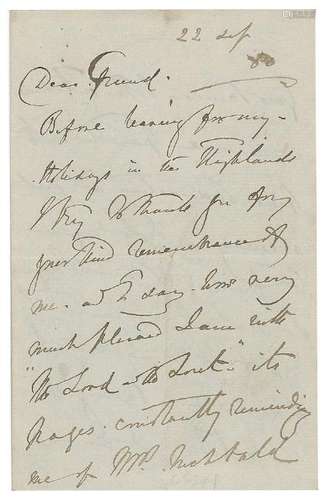 22 Sep
80
Dear Friend.
Before leaving for my
Holidays in the Highlands
I try to thank you for
your kind remembrance of
me. and to say how very
much pleased I am with
"The Lord & the" its
pages. constantly reminding
me of Mrs. Inchbald